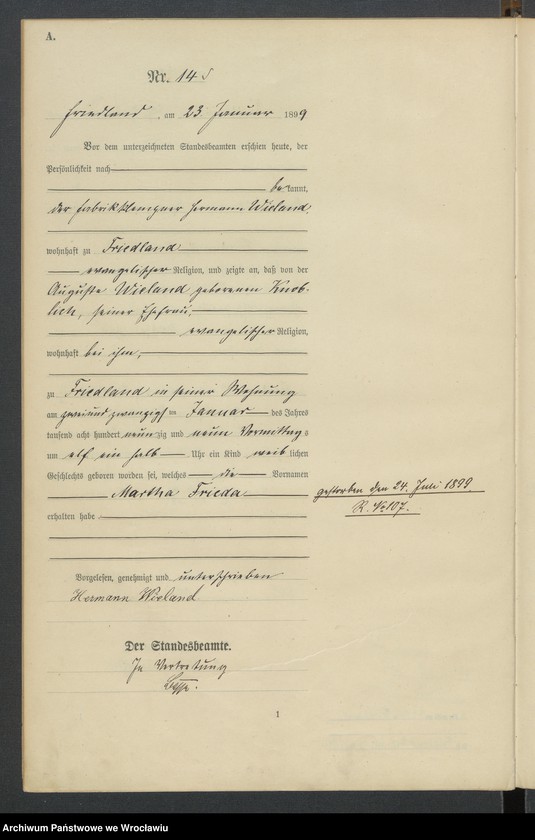 A.
Nr. 14
Friedland, am 23 Januar 1899
Vor dem unterzeichneten Standesbeamten erschien heute, der
Persönlichkeit nach
bekannt,
der Fabrikklempner Hermann Wieland,
wohnhaft zu Friedland
evangelischer Religion, und zeigte an, daß von der
Auguste Wieland geborenen Knob-
lich, seiner Ehefrau,
evangelischer Religion,
wohnhaft bei ihm,
zu Friedland in seiner Wohnung
am zweiundzwanzigsten Januar des Jahres
tausend acht hundert neunzig und neun Vormittags
um elf ein halb Uhr ein Kind weiblichen
Geschlechts geboren worden sei, welches die Vornamen
Martha Frieda
erhalten habe
gestorben den 24. Juli 1899
R. No 107.
Vorgelesen, genehmigt und unterschrieben
Hermann Wieland
Der Standesbeamte.
In Vertretung
1
Archiwum Państwowe we Wrocławiu